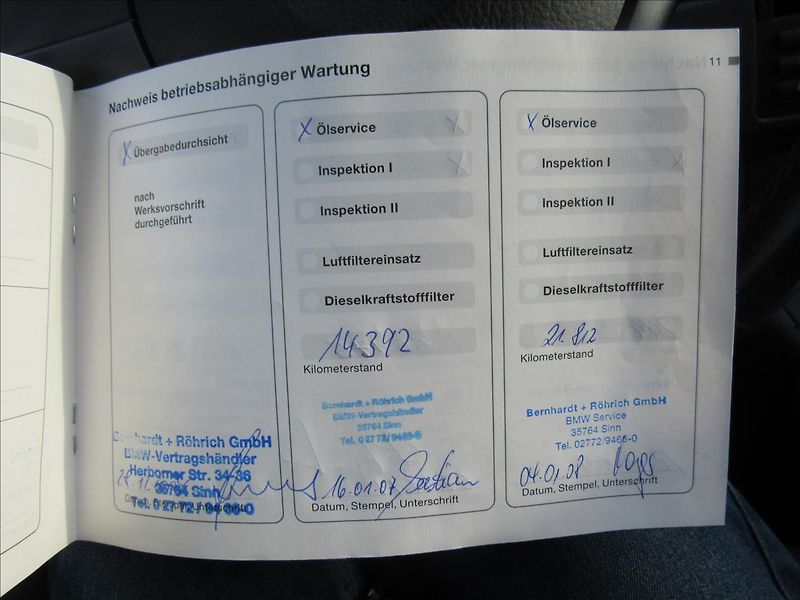 11
Nachweis betriebsabhängiger Wartung
X Übergabedurchsicht
nach
Werksvorschrift
durchgeführt
Bernhardt + Röhrich GmbH
BMW-Vertragshändler
Herborner Str. 34-36
35764 Sinn
Tel. 0 27 72 / 94 66-0
Datum, Stempel, Unterschrift
X Ölservice
Inspektion I
Inspektion II
Luftfiltereinsatz
Dieselkraftstofffilter
14392
Kilometerstand
Bernhardt + Röhrich GmbH
BMW-Vertragshändler
35764 Sinn
Tel. 0 27 72/9466-0
16.01.07
Datum, Stempel, Unterschrift
X Ölservice
Inspektion I
Inspektion II
Luftfiltereinsatz
Dieselkraftstofffilter
21.812
Kilometerstand
Bernhardt + Röhrich GmbH
BMW Service
35764 Sinn
Tel. 02772/9466-0
04.01.08
Datum, Stempel, Unterschrift